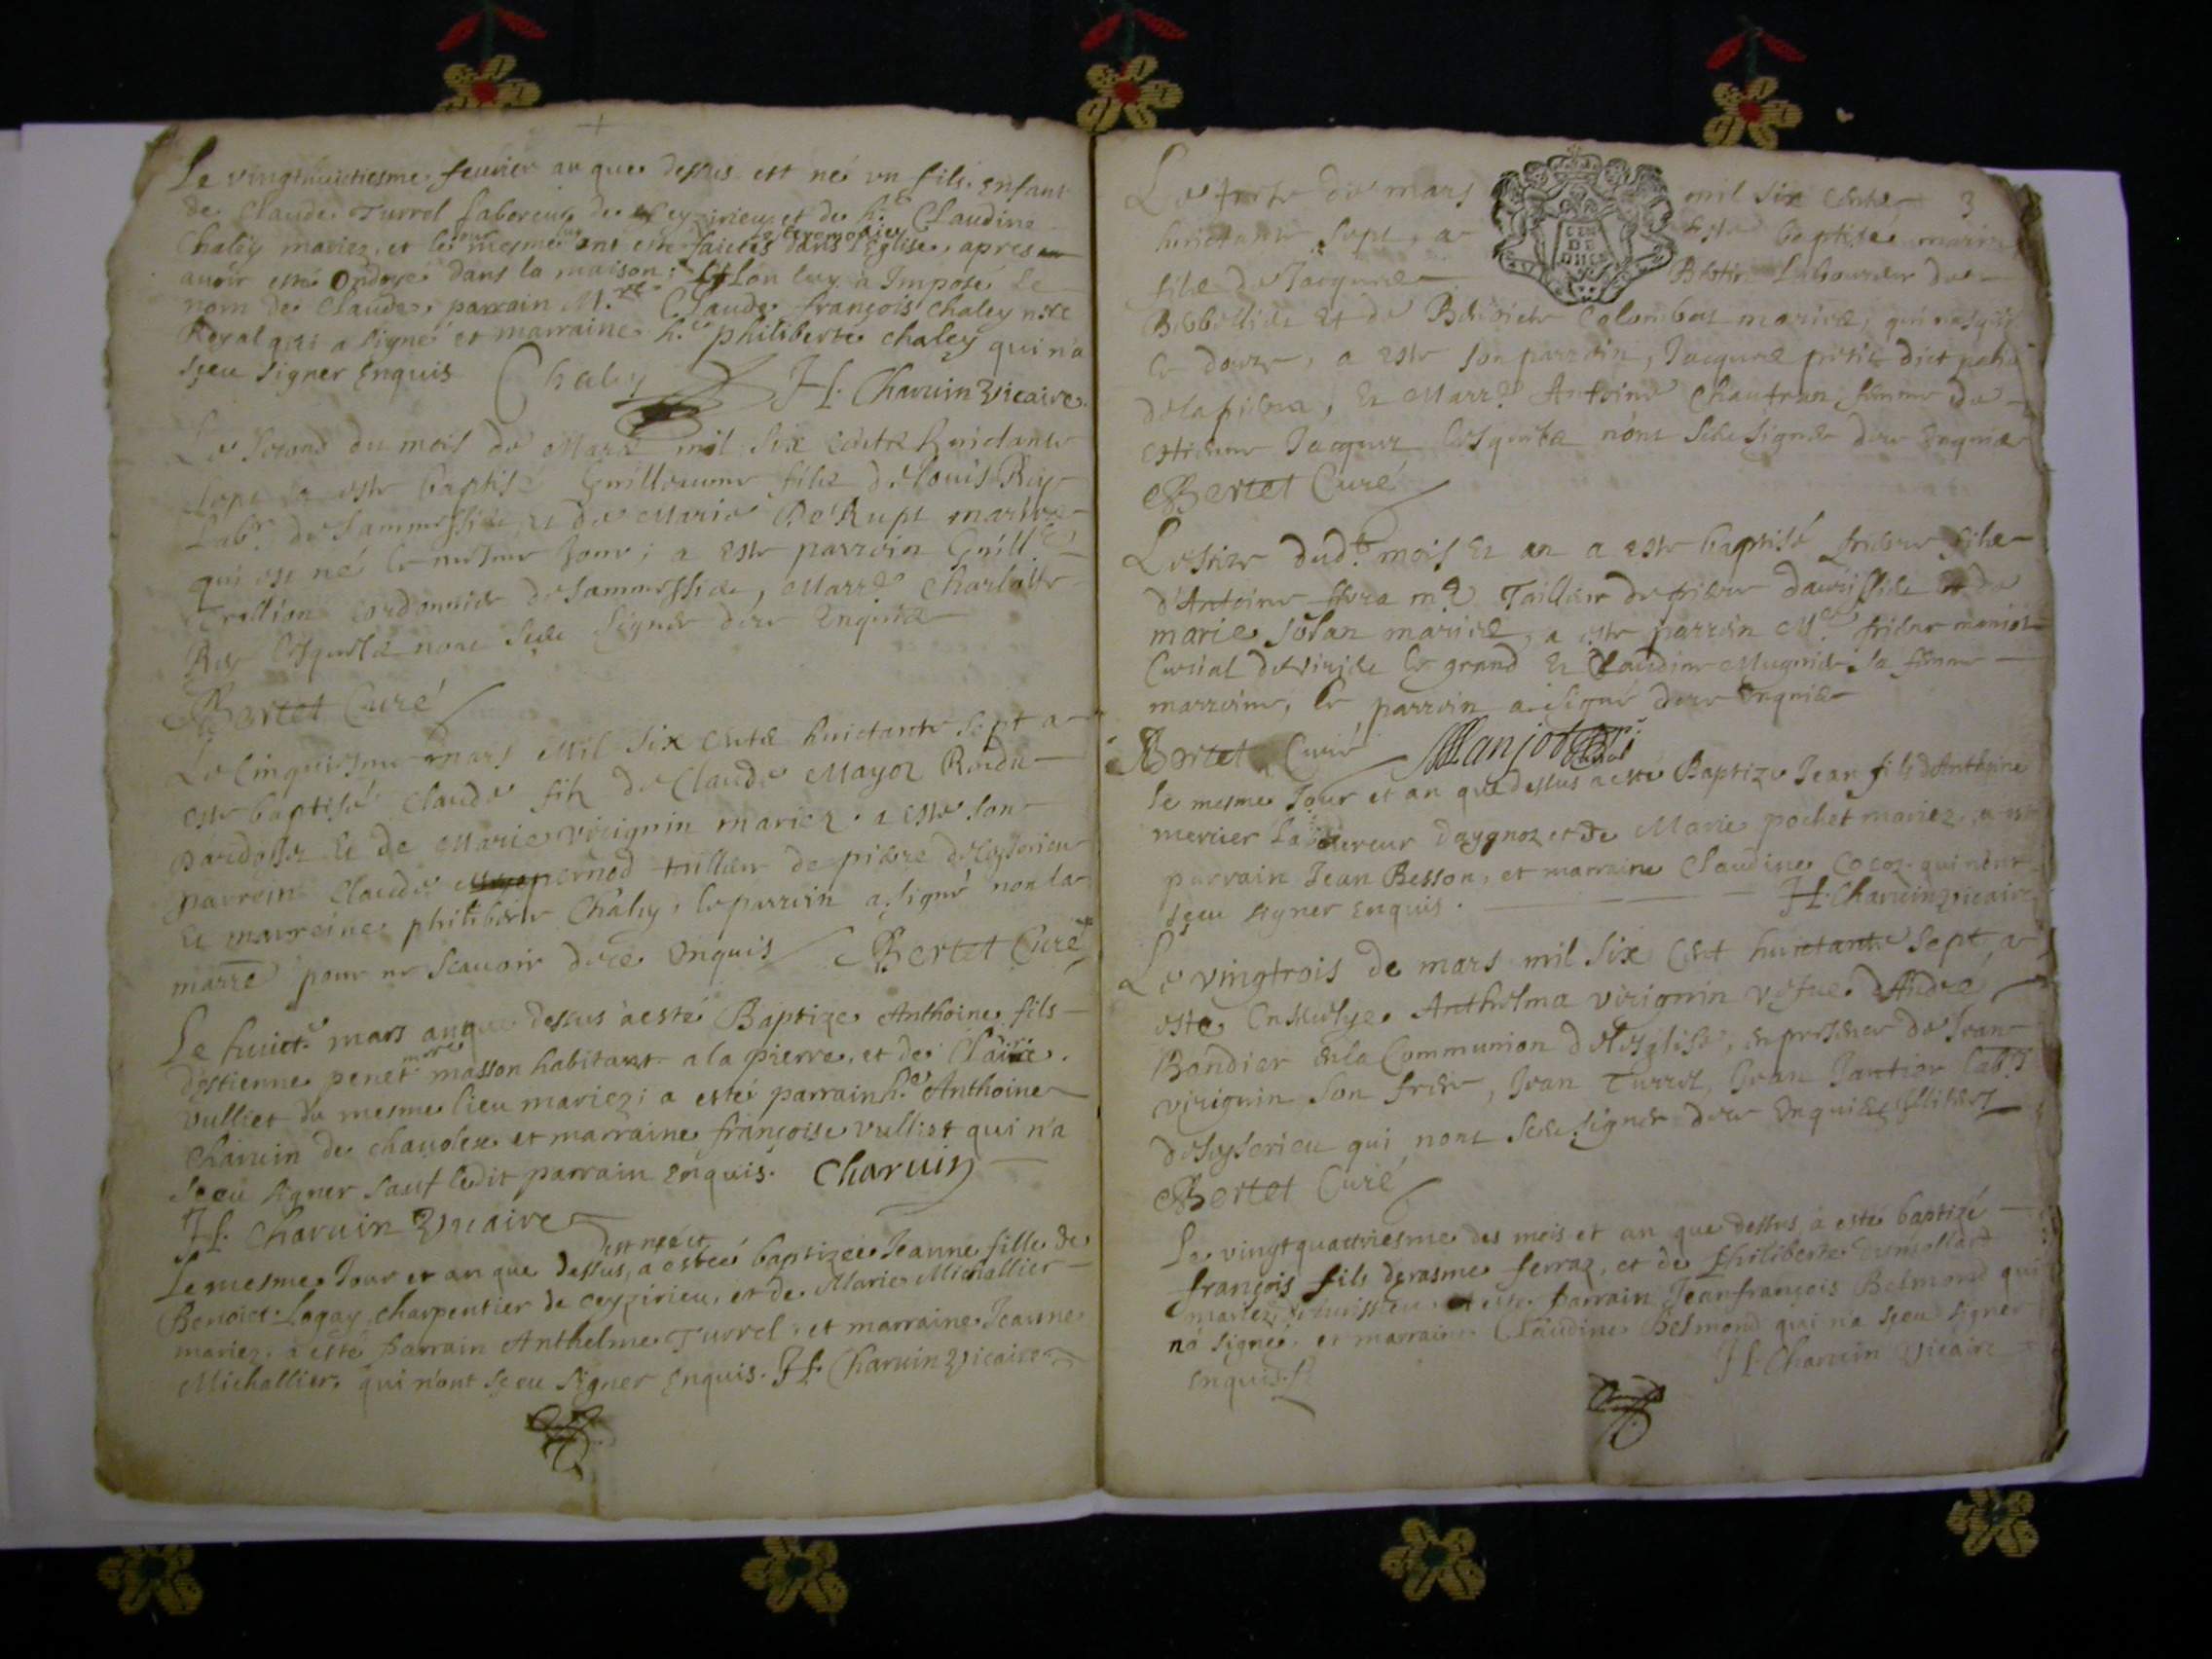 Le vingthuictiesme feuvier an que dessus est né un fils. enfant
de Claude Turrel laboreur de Ceyzirieu et de h.e Claudine
Chaley mariez, et le mesme jour ont esté faictes les ceremonies dans l'Eglise, apres
avoir esté ondoyé dans la maison: et lon luy a Imposé Le
nom de Claude, parrain M.re Claude françois Chaley n.re
Royal qui a signé et marraine h.e philiberte chaley qui n'a
sçeu signer Enquis Chaley H. Charuin Vicaire.
Le second du mois de Mars mil six centz huictante
sept a este baptisé Guilleaume filz de Louis Rey
Lab.r de Sammessieu, et de Marie De Rupt mariez
qui est né le mesme jour; a este parrein Guill.e
Trollion cordonnier de Sammessieu, Marr.e Charlotte
Rey lesquelz nont sceu signer dece Enquis
Bertet Curé
Le Cinquiesme mars Mil six centz huictante sept a
este baptisé Claude filz de Claude Mayoz
et de Marie virignin mariez. a este son
parrein Claude pernod tallieur de piere de Ceyserieu
et marreine philiberte Chaley, le parrein a signé non la
marre pour ne scauoir dece Enquis Bertet Curé
Le huict.e mars an que dessus à esté Baptize Anthoine fils
d'estienne penet m.re masson habitant a la pierre, et de Claire
vulliet du mesme lieu mariez; a esté parrain h.e Anthoine
Charuin de chauolex et marraine françoise vulliet qui n'a
sçeu signer sauf ledit parrain Enquis. Charuin
H. Charuin Vicaire
Le mesme Jour et an que dessus, est née et a estée baptizée Jeanne fille de
Benoict Lagay charpentier de ceyzirieu, et de Marie Michallier
mariez, a esté parrain Anthelme Turrel, et marraine Jeanne
Michallier, qui n'ont sçeu signer Enquis. H. Charuin Vicaire
Le traise de mars mil six centz 3
huictante sept, a esté baptisé marin
filz de Jacques Laboureur de
et de Benoiete Colombat mariez, qui nasquit
le douze, a este son parrein, Jacques petit dict
de la piera, et Marr.e Antoine Chautran femme de
estienne Jacquier lesquelz nont sceu signer dece Enquis
Bertet Curé
Le seize dud.t mois et an a este baptisé
d'Antoine m.e Tailleur de piere et de
marie Jolan mariez, a este parrein M.e
Curial de le grand et Claudine Mugnier sa femme
marreine, le parrein a signé dece Enquis
Bertet Curé Manjot
le mesme Jour et an que dessus a esté Baptize Jean fils d'Anthoine
mercier Laboureur Daygnoz et de Marie pochet mariez, a este
parrain Jean Besson, et marraine Claudine Cocoz qui n'ont
sçeu signer Enquis. H. Charuin vicaire
Le vingtrois de mars mil six cent huictante sept, a
este Enseuelye Anthelma virignin vefue d'André
Bondier en la Communion de lesglise, en presence de Jean
virignin son frere, Jean Turrel, Jean Jantier lab.rs
de Ceyserieu qui nont sceu signer dece Enquis
Bertet Curé
Le vingtquattriesme des mois et an que dessus a esté baptizé
françois fils derasme ferraz, et de Philiberte Dumollard
mariez, a esté parrain Jeanfrançois Belmond qui
na signé, et marraine Claudine Belmond qui n'a sçeu signer
Enquis. H. Charuin Vicaire